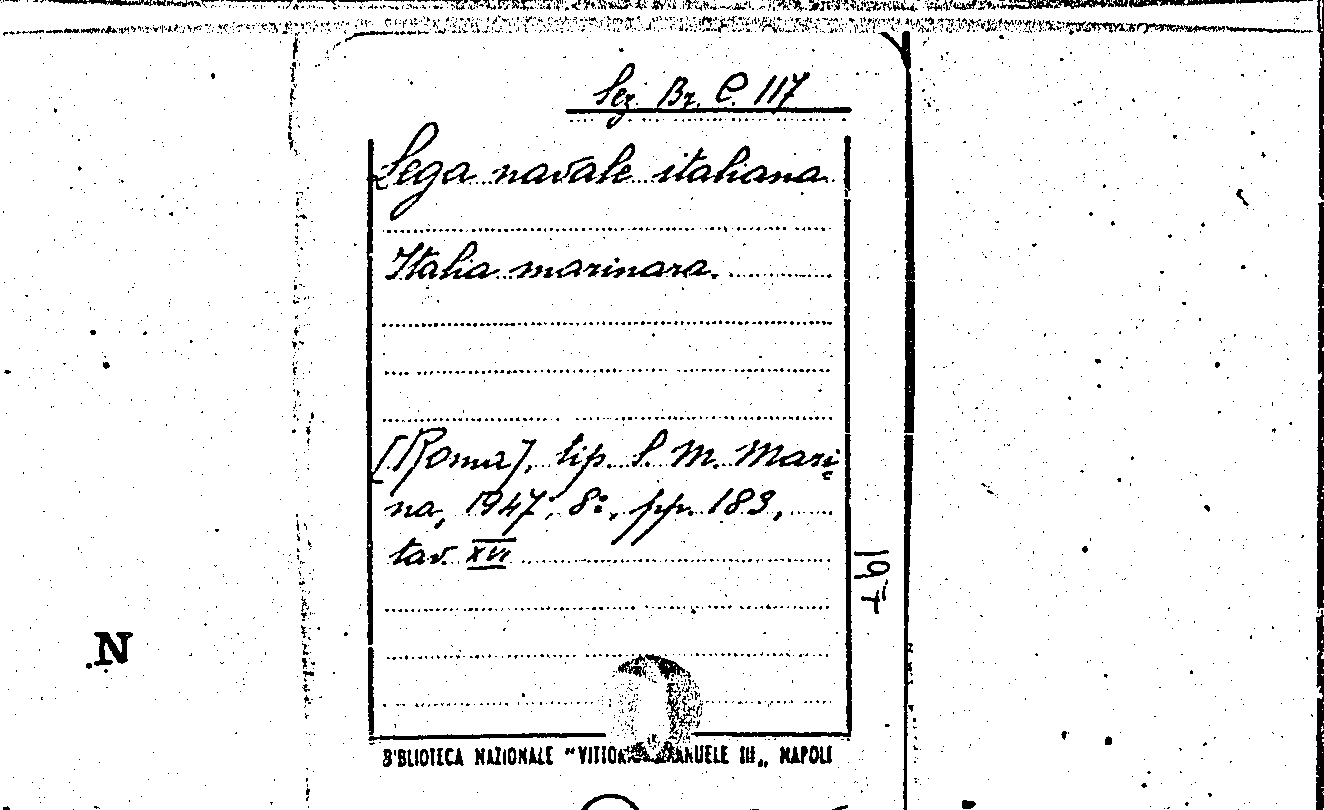 Sez. Br. C. 117
Lega navale italiana
Italia marinara.
[Roma], tip. S. M. Mari-
na, 1947, 8°, pp. 183,
tav. XVI
197
N
BIBLIOTECA NAZIONALE "VITTORIO EMANUELE III„ NAPOLI